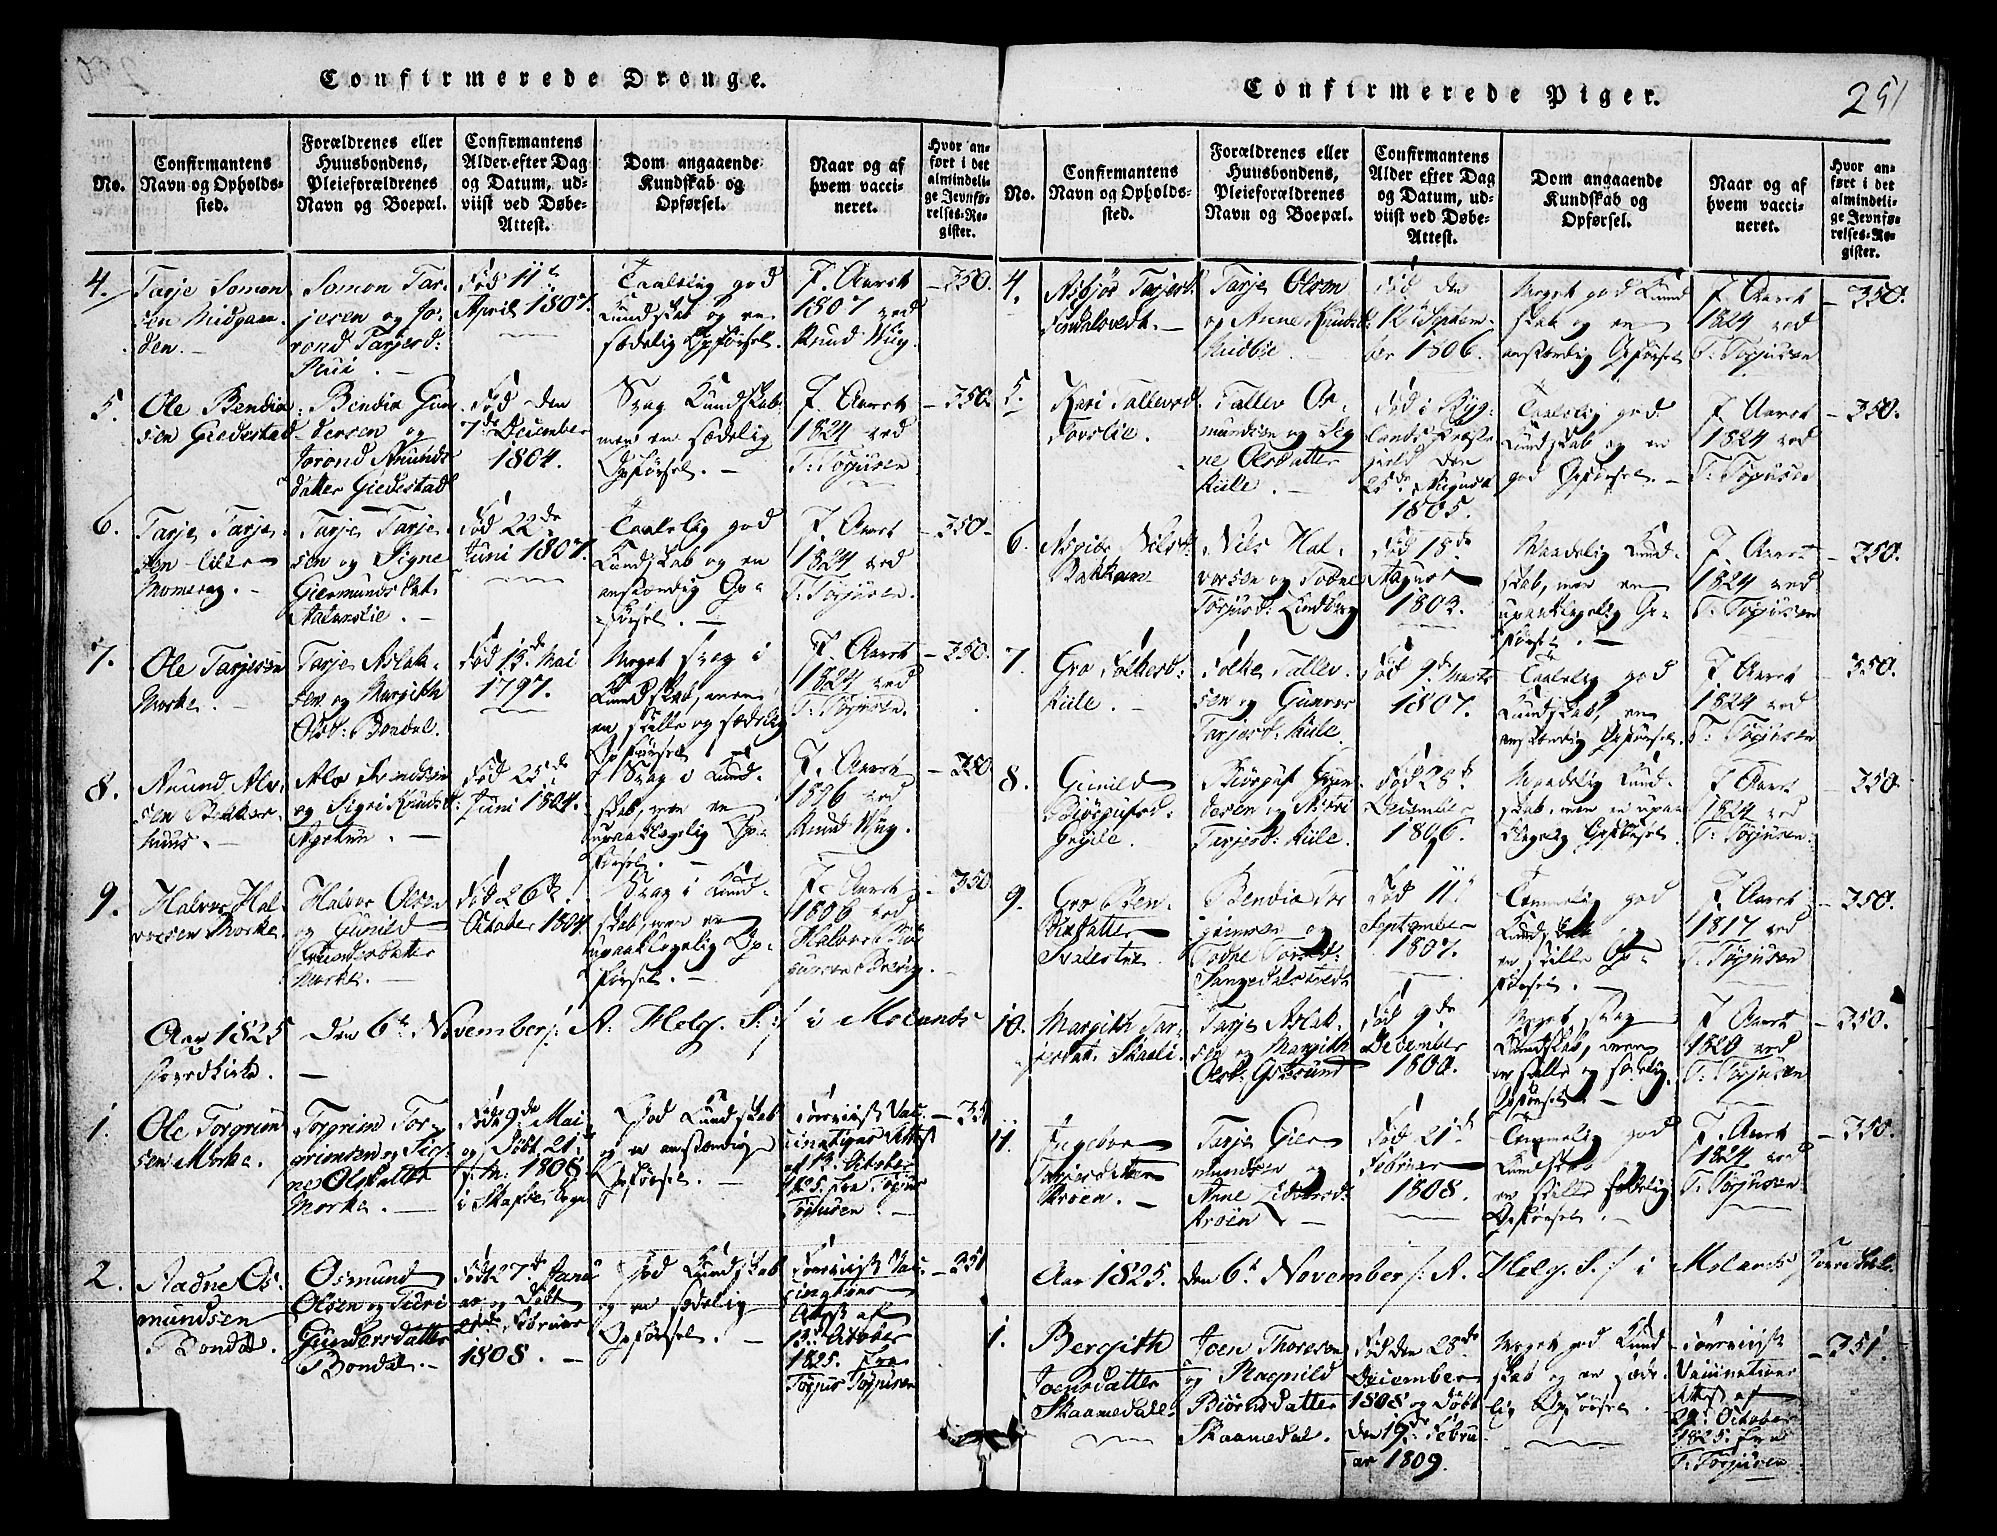 Confirmerede Drenge.
No.
Confirmantens
Navn og Opholds-
sted.
Forældrenes eller
Huusbondens,
Pleieforældrenes
Navn og Boepæl.
Confirmantens
Alder efter Dag
og Datum, ud-
viist ved Døbe-
Attest.
Dom angaaende
Kundskab og
Opførsel.
Naar og af
hvem vacci-
neret.
Hvor an-
ført i det
almindeli-
ge Jevnfø-
relses-Re-
gister.
4.
Tarje Somon
sen Midgaar-
den.
Somon Tar-
jesen og Jo-
rond Tarjesd:
Rui.
Fød 11te
April 1807.
Taalelig god
Kundskab og en
sædelig Opførsel.
J. Aaret
1807 ved
Knud Wug.
350.
5.
Ole Bendix
sen Giedestad
Bendix Gun
dersen og
Jorond Amunds
datter Giedestad
Fød den
7de December
1804.
Svag Kundskab
men en sædelig
Opførsel.
J. Aaret
1824 ved
T: Torjusen
350.
6.
Tarje Tarje-
sen lille-
Momrag.
Tarje Tarje-
sen og Signe
Giermundsdat.
Fød 22de
Juni 1807.
Taalelig god
Kundskab og en
anstændig Op-
førsel.
J. Aaret
1824 ved
T: Torjusen.
350.
7.
Ole Tarjesen
Morke.
Tarje Aslak-
sen og Margith
Olsd: Bondal.
Fød 13de Mai
1797.
Meget svag i
Kundskab, men
en stille og sædelig
Opførsel
J. Aaret
1824 ved
T: Torjusen.
350.
8.
Anund Alv-
sen
og Sigri Knudsd:
Fød 25de
Juni 1804.
Svag i Kund-
skab, men en
upaaklagelig Op-
førsel.
J. Aaret
1806 ved
Knud Wug.
350
9.
Halvor Hal-
vorsen Morke.
Halvor Olsen
og Gunild
Gundersdatter
Morke.
Fød 26de
October 1804
Svag i Kund-
skab, men en
upaaklagelig Op-
førsel.
J. Aaret
1806 ved
Halvor
350
Aar 1825 den 6te November /: A: Helg. S: :/ i Molands
hovedkirke.
1.
Ole Torgrim
sen Morke.
Torgrim Tor-
grimsen og Sig-
ne Olsdatter
Morke.
Fød 9de Mai
og Døbt 21
s. M: 1808
i Skafse Sogn
God Kundskab
og en anstændig
Opførsel.
Foreviist Vac-
cinations Attest
af 13. October
1825 fra Torjus
Torjusen.
351
2.
Aadne Os-
mundsen
Bondal.
Osmund
Olsen og Guri
Gundersdatter
Bondal.
Født 27de Janu
ar og Døbt
21de Februar
1808.
God Kundskab
og en sædelig
Opførsel.
Foreviist Vac-
cinations
Attest af
13. October
1825. fra
Torjus Torjusen
351
Confirmerede Piger.
251
No.
Confirmantens
Navn og Opholds-
sted.
Forældrenes eller
Huusbondens,
Pleieforældrenes
Navn og Boepæl.
Confirmantens
Alder efter Dag
og Datum, ud-
viist ved Døbe-
Attest.
Dom angaaende
Kundskab og
Opførsel.
Naar og af
hvem vacci-
neret.
Hvor an-
ført i det
almindeli-
ge Jevnfø-
relses-Re-
gister.
4.
Asbjør Tarjesd:
Tarje Olson
og Anne Knudsd:
Fød den
12te Septem-
ber 1806.
Meget god Kund
skab og en
anstændig Opførsel
J. Aaret
1824 ved
T: Torjusen
350.
5.
Kari Tallevsd:
Fovslie.
Tallev Os-
mundsen og Sig
ne Olsdatter
Kiile.
Fød i Byg-
lands Præste
gield den
25de August
1805.
Taalelig god
Kundskab og en
god Opførsel.
J. Aaret
1824 ved
T: Torjusen
350.
6.
Nilsd:
Bakken
Nils Hal-
vorsen og Todne
Torjusd: Lindberg
Fød 18de
August
1803.
Maadelig Kund-
skab, men en
upaaklagelig Op-
førsel.
J. Aaret
1824 ved
T: Torjusen
350.
7.
Gro Folkesd:
Kiile.
Folke Tallev-
sen og Gunvor
Tarjesd: Kiile.
Fød 9de Marts
1807.
Taalelig god
Kundskab, en
anstændig Opførsel.
J. Aaret
1824 ved
T: Torjusen
350.
8.
Gunild
Biørgufsd:
Biørguf Gun-
dersen og
Tarjesd: Kiile.
Fød 28de
December
1806.
Maadelig Kund-
skab, men en upaa-
klagelig Opførsel
J. Aaret
1824 ved
T: Torjusen.
350.
9.
Gro Ben-
dixdatter
Bendix Tor
grimsen og
Todne Torsd:
Fød 11te
September
1807.
Temmelig god
Kundskab og
en stille Op-
førsel.
J. Aaret
1817 ved
T: Torjusen
350.
10.
Margith Tar-
jesdat. Skaali.
Tarje Aslak-
sen og Margith
Olsd:
Fød 9de
December
1800.
Meget svag
Kundskab, men
en stille og sædelig
Opførsel.
J. Aaret
1820 ved
T: Torjusen
350.
11.
Ingebor
Tarjesdatter
Kroen.
Tarje Gier
mundsen og
Anne Eivindsd:
Kroen.
Fød 21de
Februar
1808.
Temmelig god
Kundskab og
en stille sædelig
Opførsel.
J. Aaret
1824 ved
T: Torjusen.
350.
Aar 1825. den 6te November /: A. Helg. S. :/ i Molands
1.
Bergith
Joensdatter
Skaamedal.
Joen Thoresen
og Ragnild
Biørnsdatter
Skaamedal.
Fød den 28de
December
1808 og døbt
den 19de Febru
ar 1809.
Meget god Kund
skab og en sæde-
lig Opførsel.
Foreviist
Vaccinations
Attest af
22. October
1825. fra
T: Torjusen.
351.